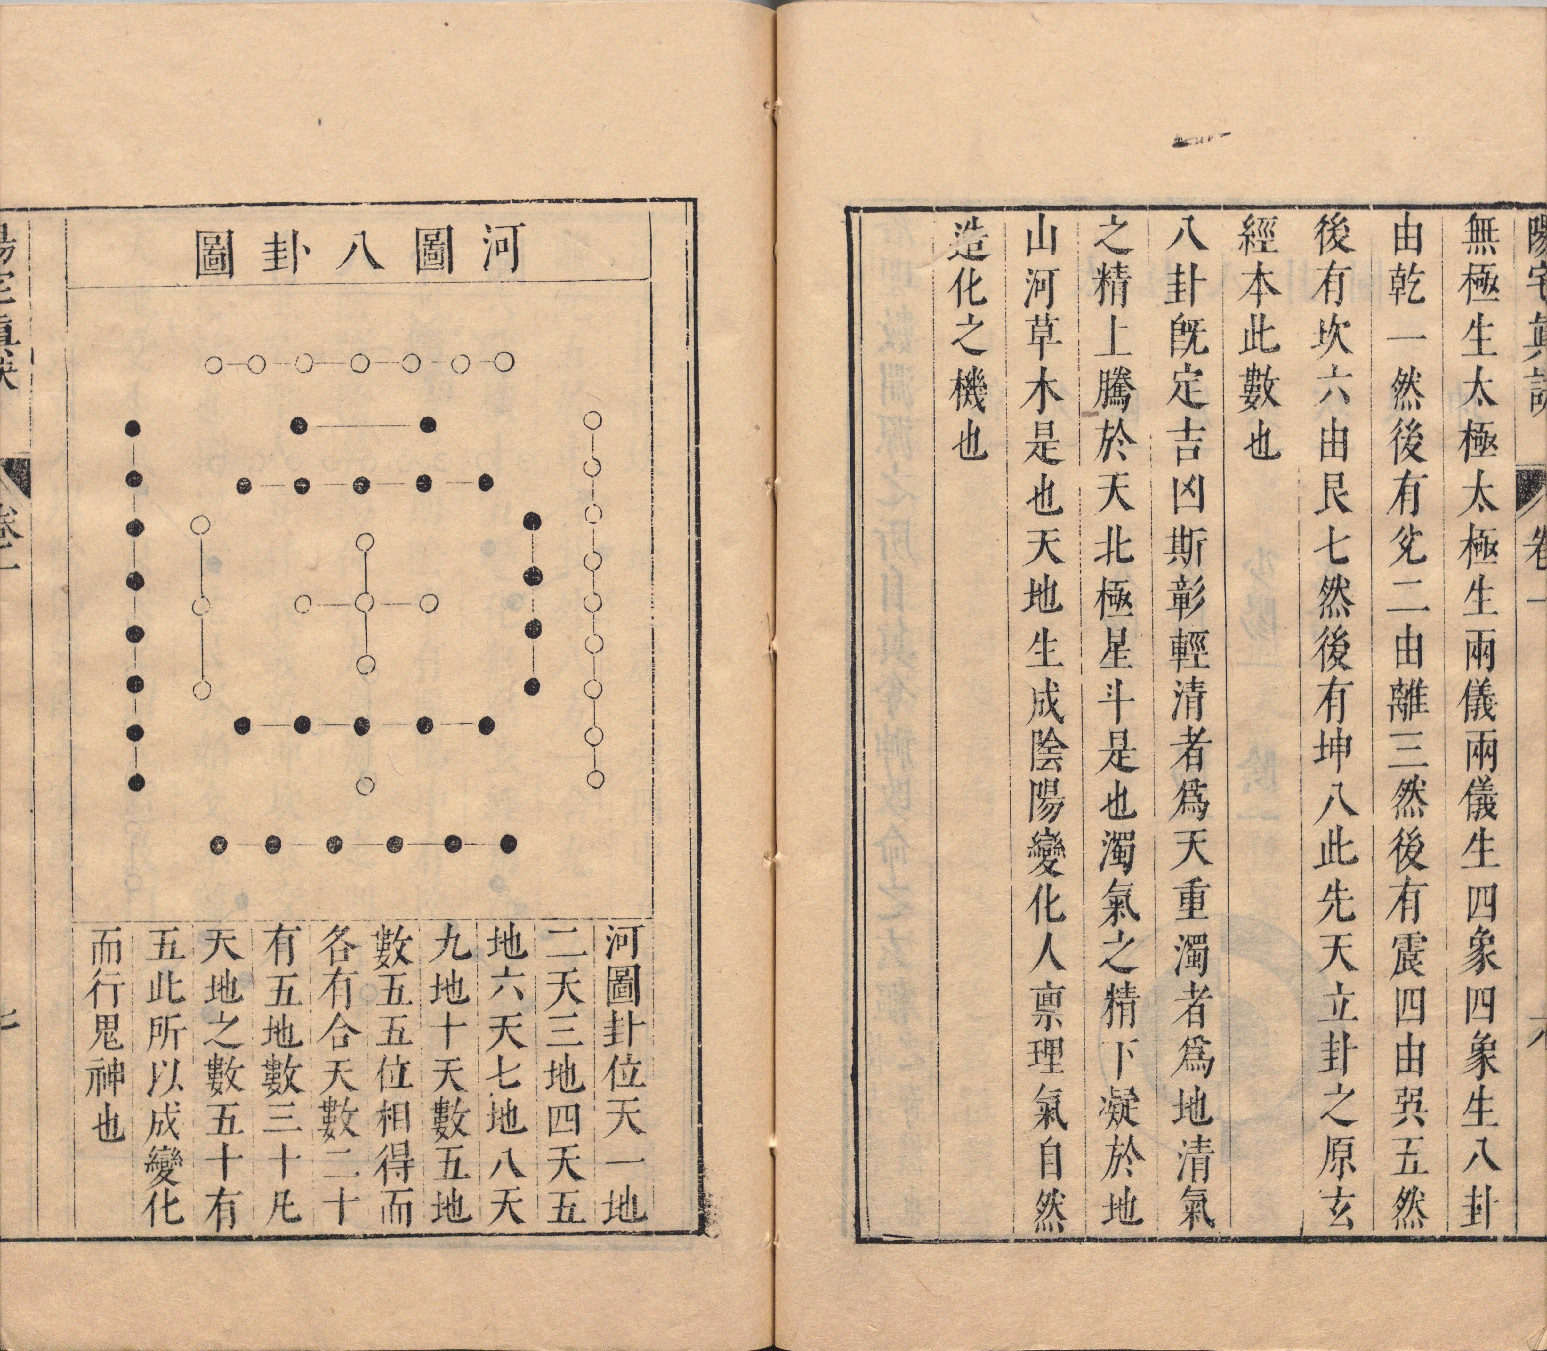 陽宅真訣
卷一
六
無極生太極太極生兩儀兩儀生四象四象生八卦
由乾一然後有兊二由離三然後有震四由巽五然
後有坎六由艮七然後有坤八此先天立卦之原玄
經本此數也
八卦旣定吉凶斯彰輕清者爲天重濁者爲地清氣
之精上騰於天北極星斗是也濁氣之精下凝於地
山河草木是也天地生成陰陽變化人禀理氣自然
造化之機也
河圖八卦圖
河圖卦位天一地
二天三地四天五
地六天七地八天
九地十天數五地
數五五位相得而
各有合天數二十
有五地數三十凡
天地之數五十有
五此所以成變化
而行鬼神也
陽宅真訣
卷一
七